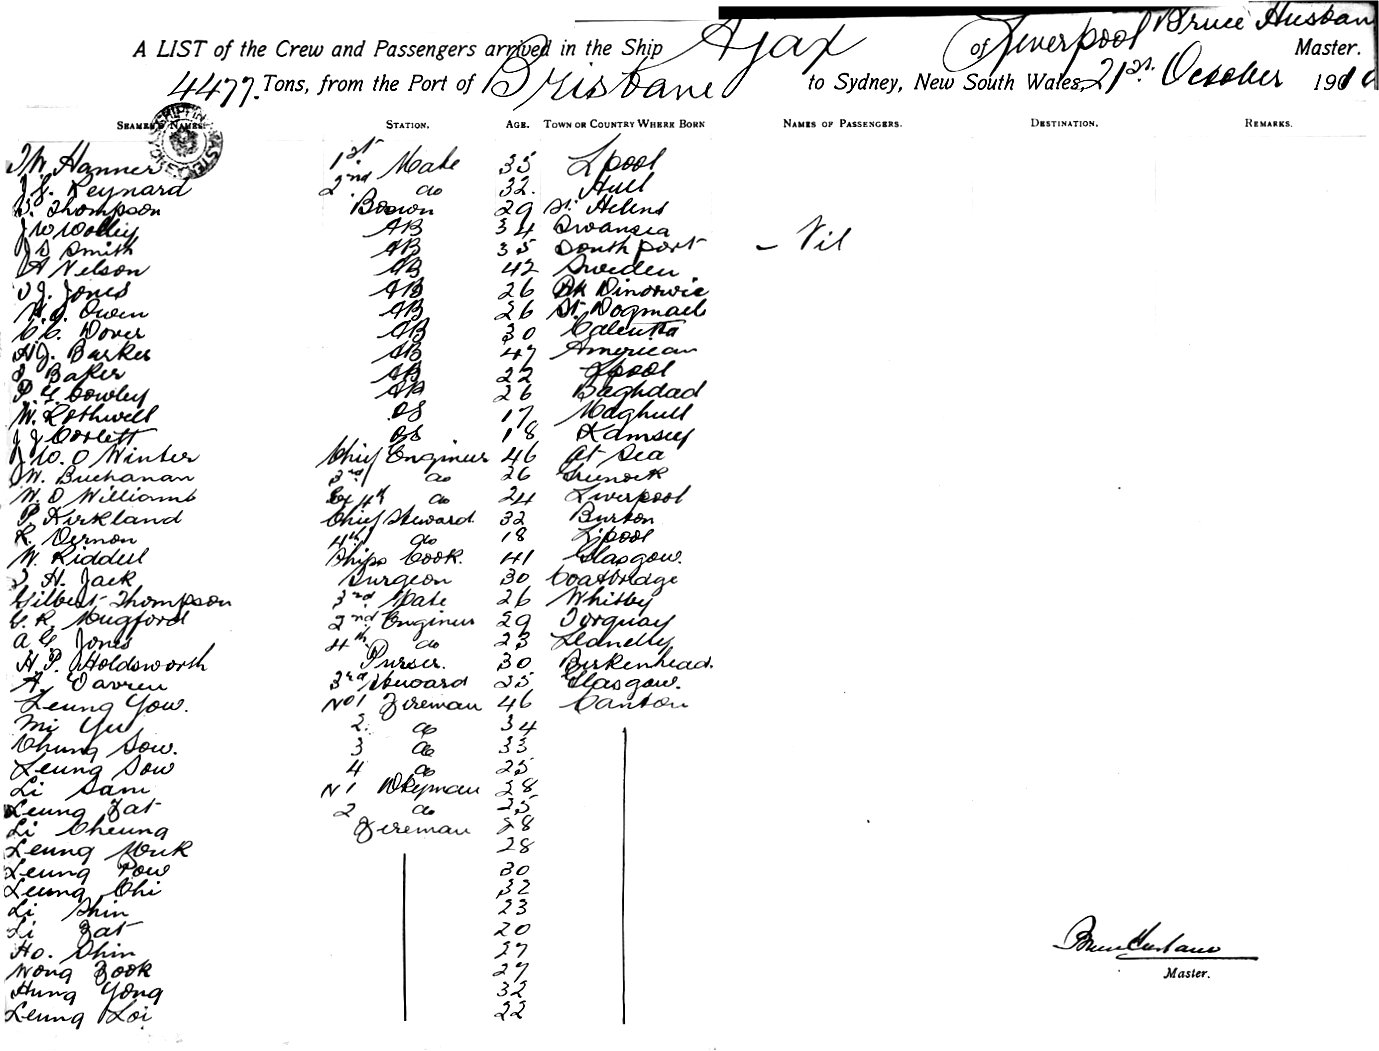 A LIST of the Crew and Passengers arrived in the Ship Ajax of Liverpool Bruce Husband Master.
4477 Tons, from the Port of Brisbane to Sydney, New South Wales, 21st October 1910
SEAMEN'S NAMES. STATION. AGE. TOWN OR COUNTRY WHERE BORN NAMES OF PASSENGERS. DESTINATION. REMARKS.
Hanner 1st Mate 35 Lpool
Reynard 2nd do 32. Hull
Thompson Bosun 29 St. Helens
J W Woolley AB 34 Swansea
J S Smith AB 35 Southport – Nil
A Nelson AB 42 Sweden
J. Jones AB 26 Pt Dinorwic
Owen AB 26 St. Dogmaels
C. C. Dover AB 30 Calcutta
H J. Barker AB 47 American
Baker AB 22 Lpool
P. G Cowley AB 26 Baghdad
W. Rothwell OS 17 Maghull
J J Corlett OS 18 Ramsey
J W. O Winter Chief Engineer 46 At Sea
W. Buchanan 3rd do 26 Greenock
W. O Williams 4th do 24 Liverpool
P. Kirkland Chief Steward 32 Burton
R. Vernon 4th do 18 Lpool
W. Riddell Ships Cook. 41 Glasgow.
H. Jack Surgeon 30 Coatbridge
Gilbert Thompson 3rd Mate 26 Whitby
C. R. Mugford 2nd Engineer 29 Torquay
A G. Jones 4th do 23 Llanelly
H. P. Holdsworth Purser. 30 Birkenhead.
A. Darren 3rd Steward 25 Glasgow.
Leung Yow. No 1 Fireman 46 Canton
Mi Yu 2. do 34
Chung Sow. 3 do 33
Leung Sow 4 do 25
Li Sam N 1 Dkyman 28
Leung Fat 2 do 25
Li Cheung Fireman 28
Leung Muk 28
Leung Pow 30
Leung Chi 32
Li Shin 23
Li Fat 20
Ho. Shin 27
Wong Fook 27
Hung Yong 32
Leung Loi 22
Bruce Husband
Master.